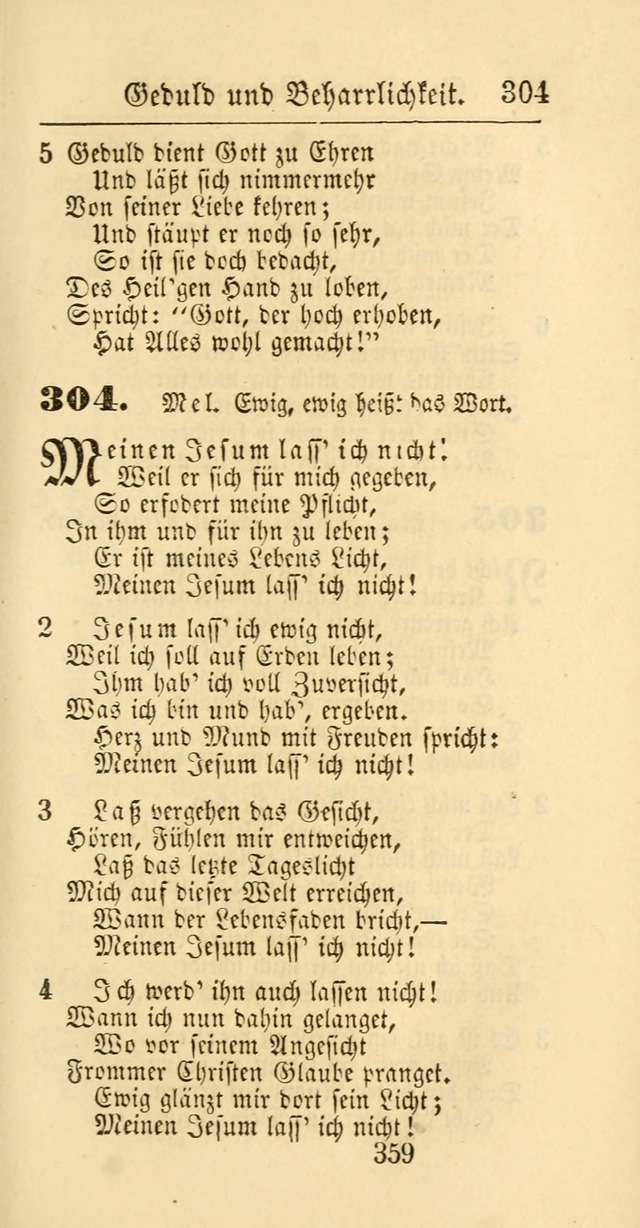 Geduld und Beharrlichkeit. 304
5 Geduld dient Gott zu Ehren
Und läßt sich nimmermehr
Von seiner Liebe kehren;
Und stäupt er noch so sehr,
So ist sie doch bedacht,
Des Heil'gen Hand zu loben,
Spricht: “Gott, der hoch erhoben,
Hat Alles wohl gemacht!”
304. Mel. Ewig, ewig heißt das Wort.
Meinen Jesum lass' ich nicht!
Weil er sich für mich gegeben,
So erfodert meine Pflicht,
In ihm und für ihn zu leben;
Er ist meines Lebens Licht,
Meinen Jesum lass' ich nicht!
2 Jesum lass' ich ewig nicht,
Weil ich soll auf Erden leben;
Ihm hab' ich voll Zuversicht,
Was ich bin und hab', ergeben.
Herz und Mund mit Freuden spricht:
Meinen Jesum lass' ich nicht!
3 Laß vergehen das Gesicht,
Hören, Fühlen mir entweichen,
Laß das letzte Tageslicht
Mich auf dieser Welt erreichen,
Wann der Lebensfaden bricht,—
Meinen Jesum lass' ich nicht!
4 Ich werd' ihn auch lassen nicht!
Wann ich nun dahin gelanget,
Wo vor seinem Angesicht
Frommer Christen Glaube pranget.
Ewig glänzt mir dort sein Licht;
Meinen Jesum lass' ich nicht!
359